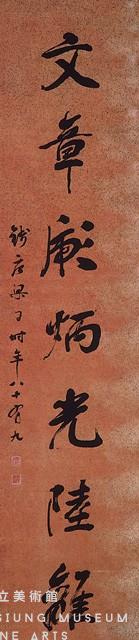 文章彪炳光陸離
錢唐梁同書年八十有九
立美術館
SIUNG MUSEUM
INE ARTS